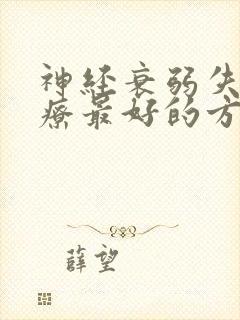 神经衰弱失
疗最好的方
薛望